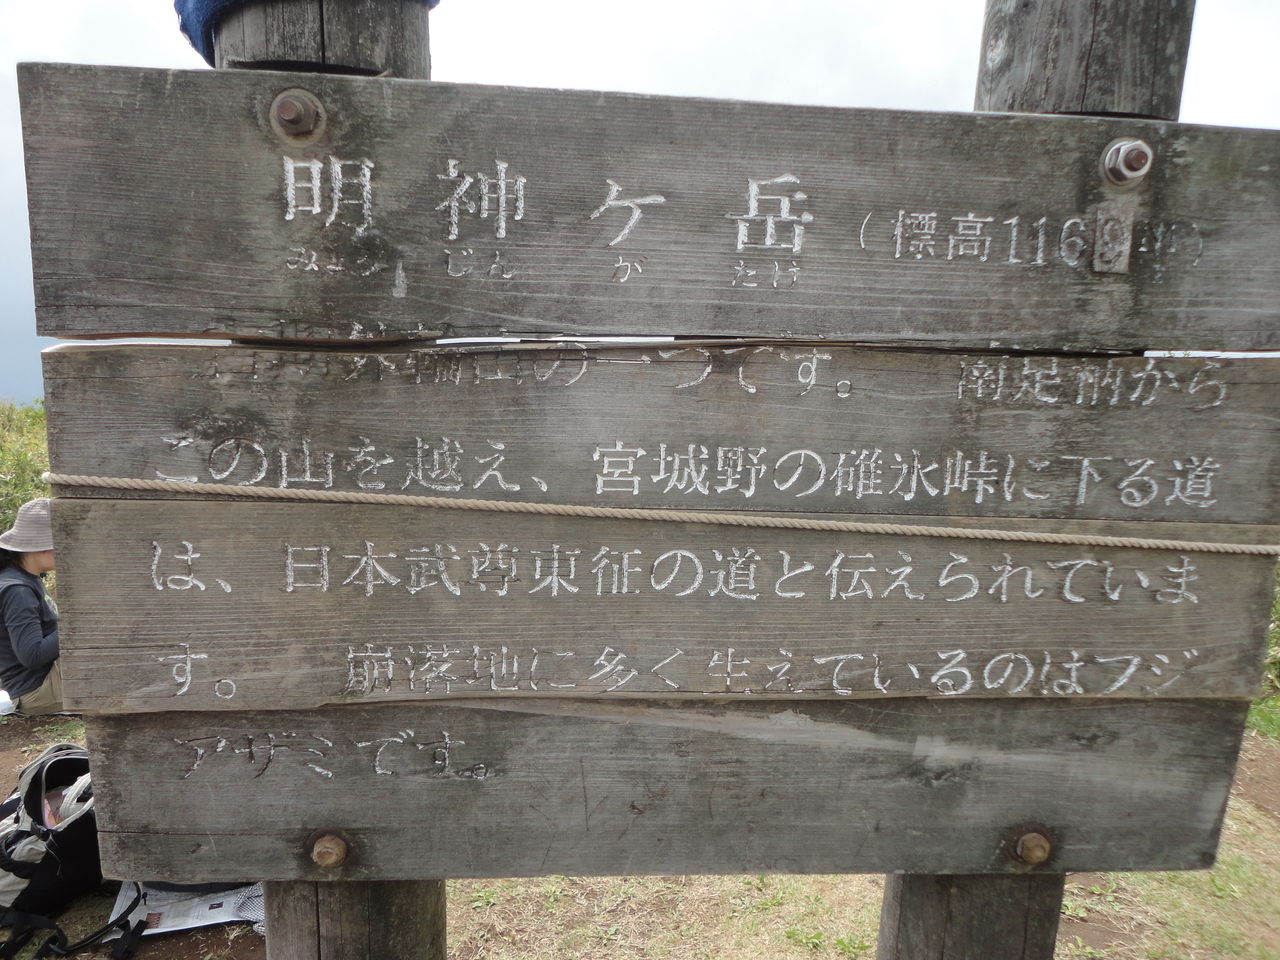 明神ヶ岳（標高1169m）
みょうじんがたけ
外輪山の一つです。　南足柄から
この山を越え、宮城野の碓氷峠に下る道
は、日本武尊東征の道と伝えられていま
す。　崩落地に多く生えているのはフジ
アザミです。